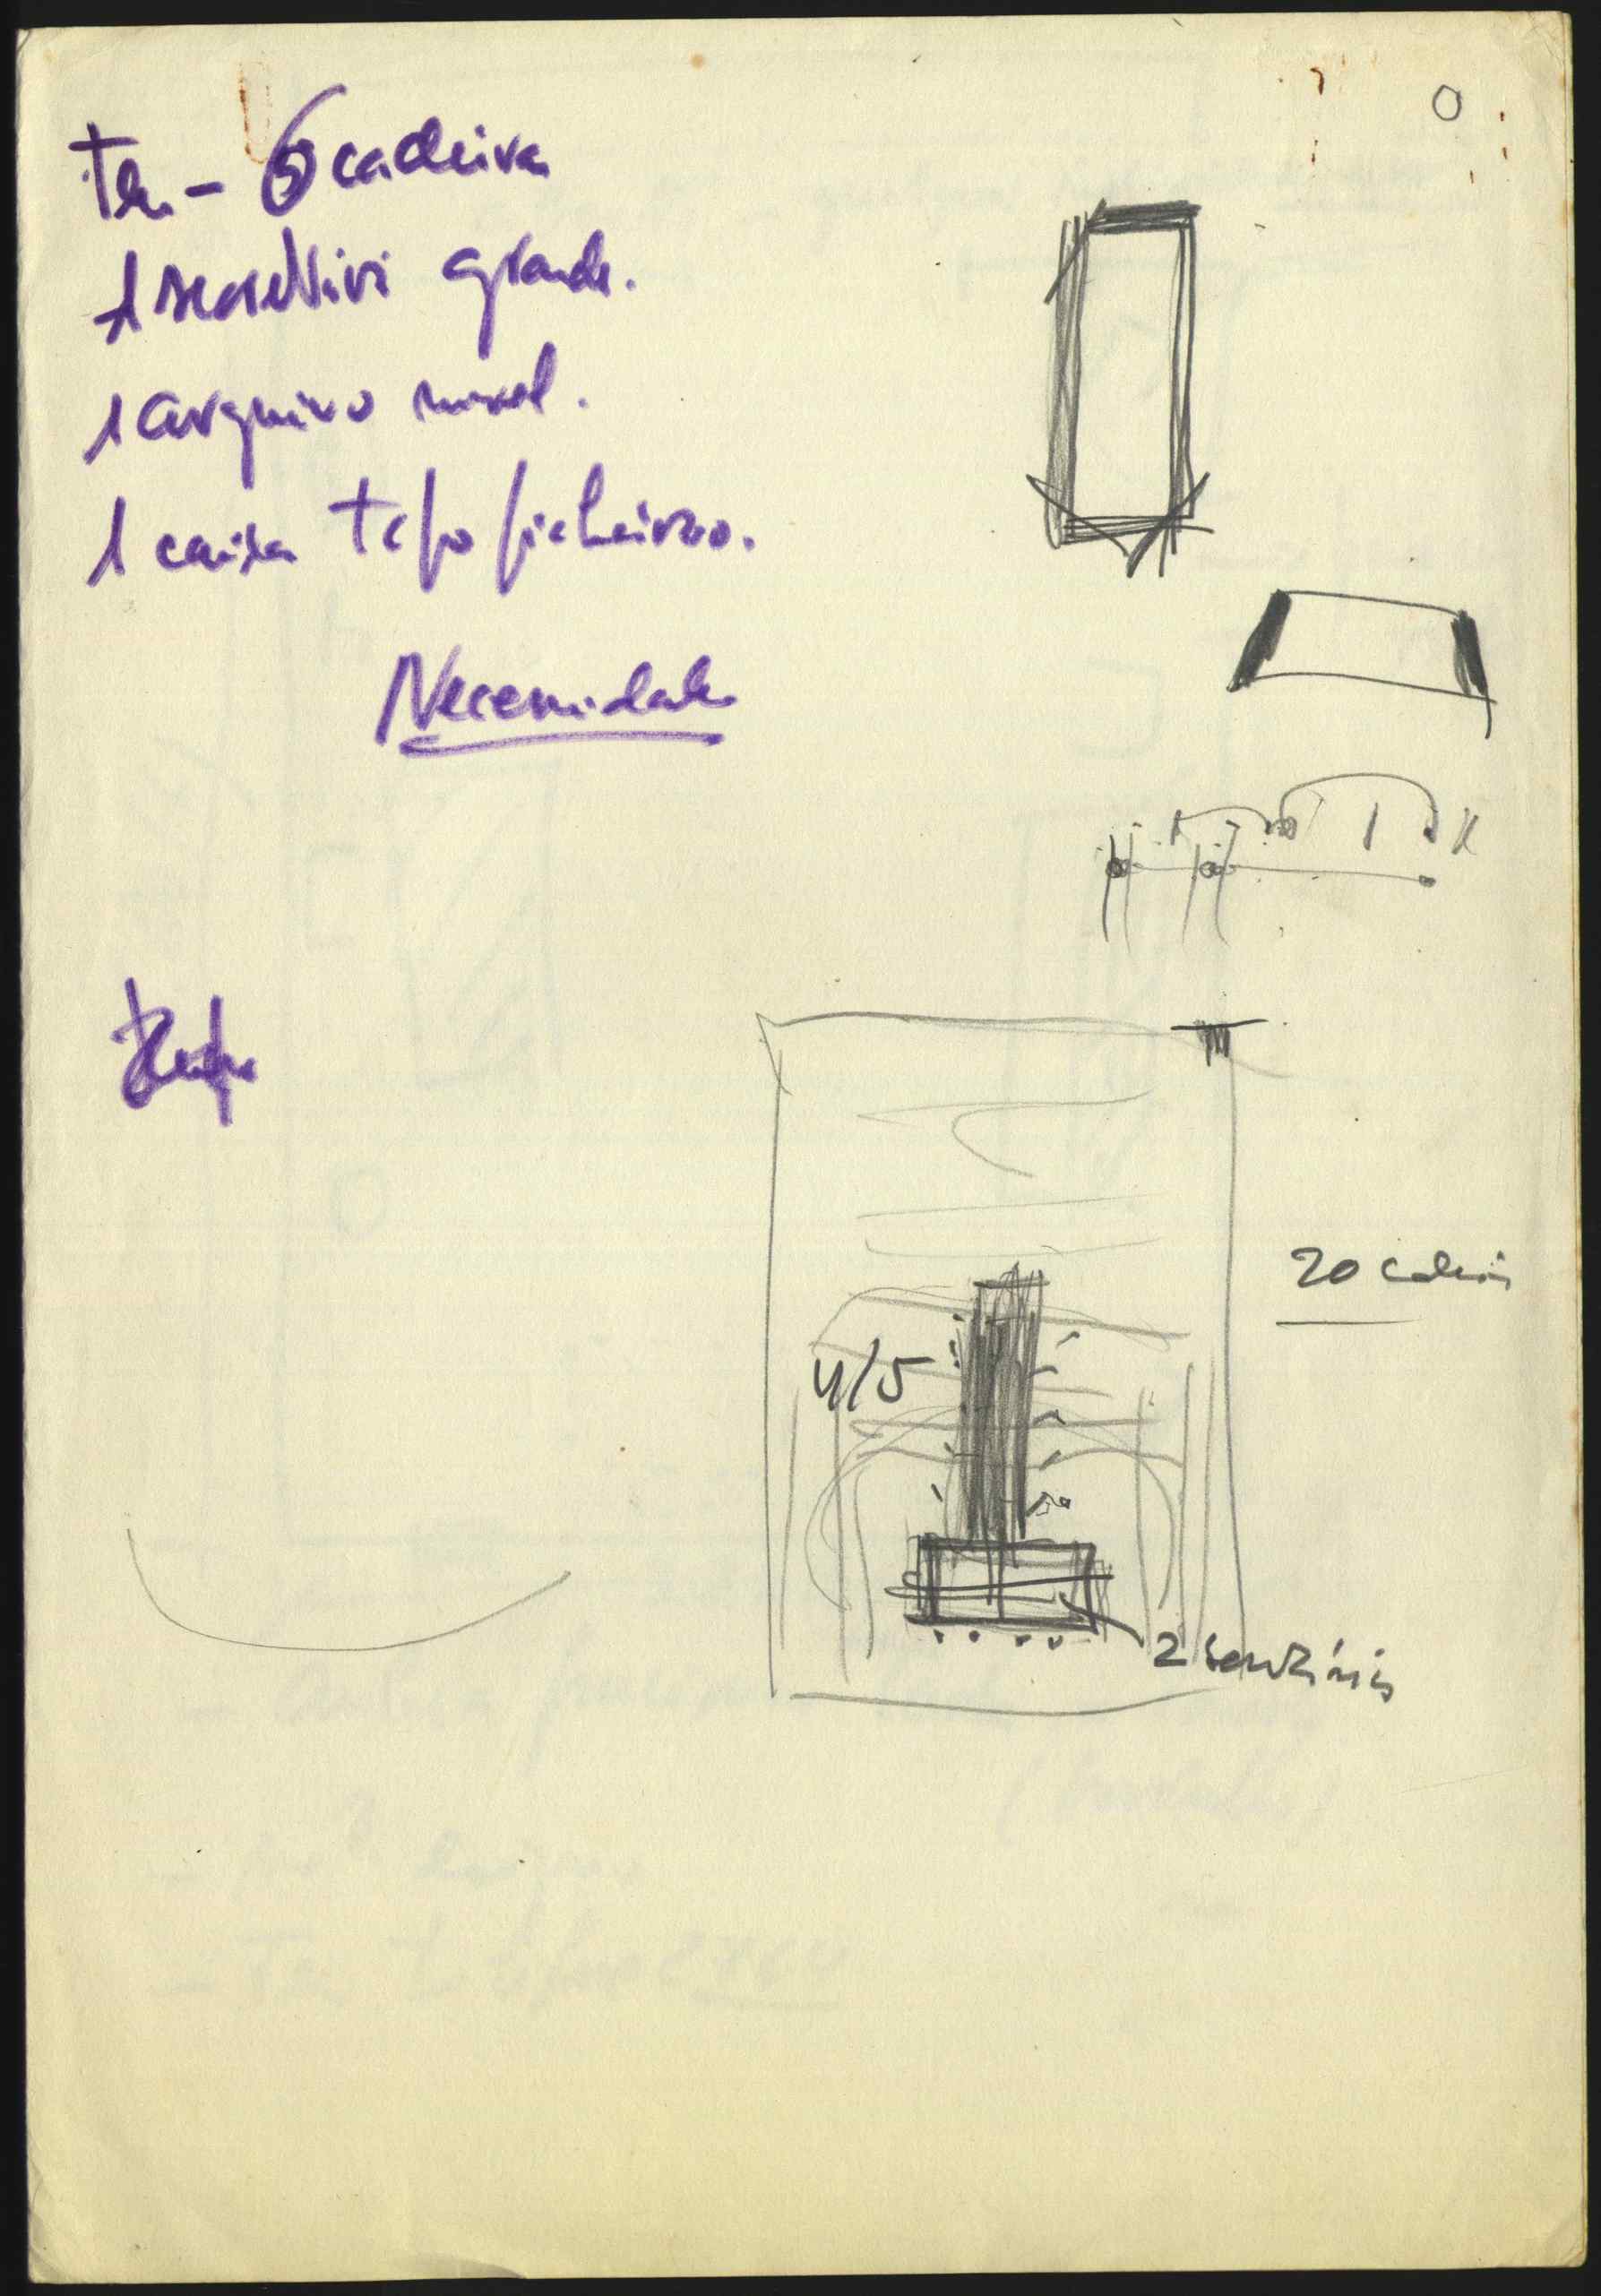 Tem - 6 cadeiras
1 secretária grande.
1 arquivo movel.
1 caixa tipo ficheiro.
Necessidade
20 cadeiras
4/5
2 secretárias